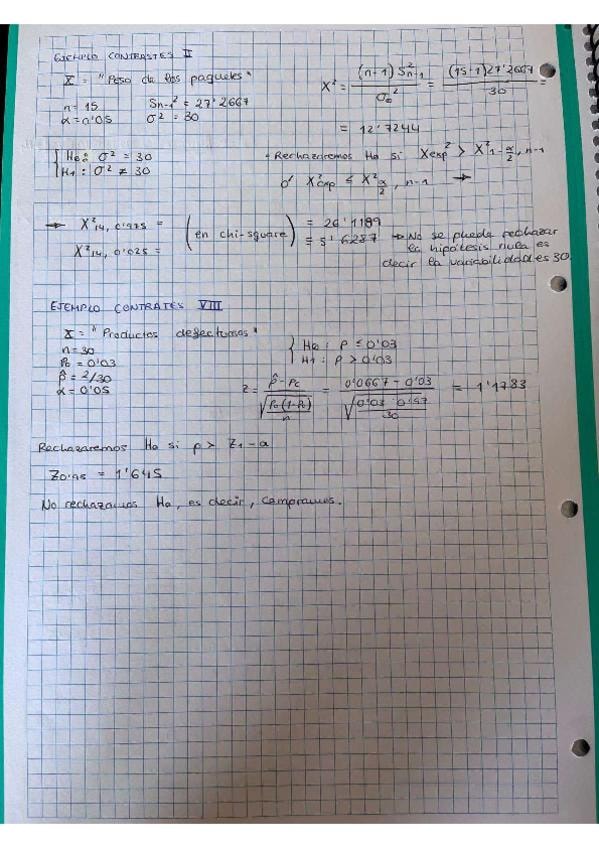 EJEMPLO CONTRASTES II
X = "Peso de los paquetes"
n = 15 Sn-1² = 27'2667
α = 0'05 σ² = 30
X² = (n-1) S²n-1 / σ0² = (15-1) 27'2667 / 30 =
= 12'7244
{ H0: σ² = 30
H1: σ² ≠ 30
• Rechazaremos H0 si Xexp² > X²1-α/2, n-1
ó X²exp ≤ X²α/2, n-1 →
→ X²14, 0'975 = (en chi-square) = 26'1189
X²14, 0'025 = = 5'6287 → No se puede rechazar
la hipótesis nula es
decir la variabilidad es 30.
EJEMPLO CONTRATES VIII
X = "Productos defectuosos"
n = 30
P0 = 0'03
p̂ = 2/30
α = 0'05
{ H0: P ≤ 0'03
H1: P > 0'03
z = p̂ - P0 / √(P0(1-P0)/n) = 0'0667 - 0'03 / √(0'03 · 0'97/30) = 1'1783
Rechazaremos H0 si p > Z1-α
Z0'95 = 1'645
No rechazamos H0, es decir, compramos.